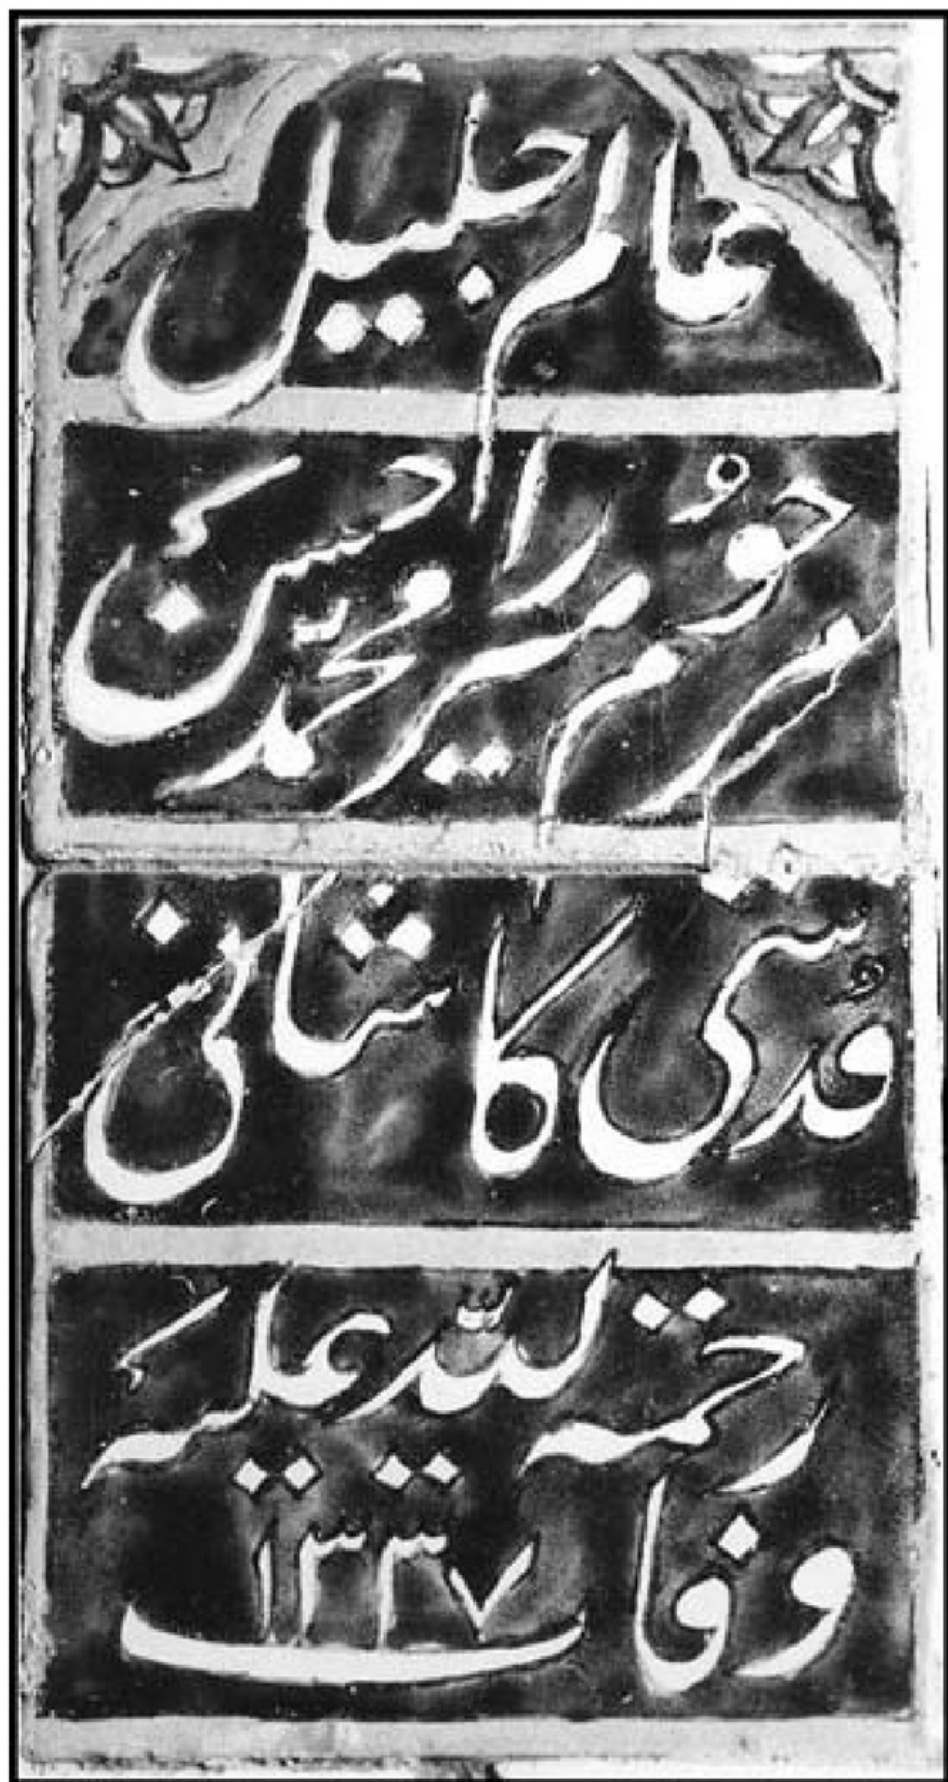 عالم جلیل
مرحوم میرزا محمد حسن
قدسی کاشانی
رحمة الله علیه
وفات ۱۳۳۷